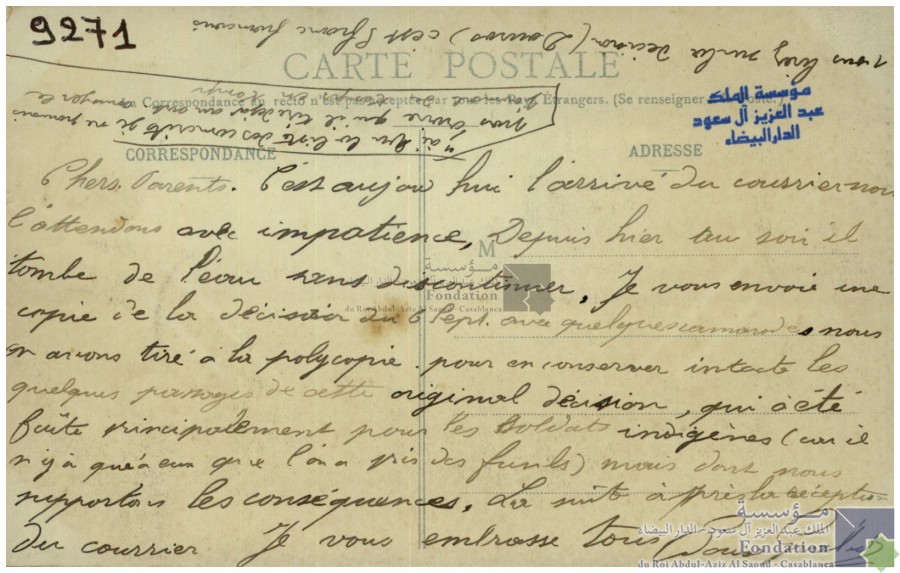 9271
vous lirez sur la decision (Douros) c'est Franc francais
CARTE POSTALE
La Correspondance au recto n'est pas acceptée par tous les Pays Étrangers. (Se renseigner à la Poste.)
مؤسسة الملك
عبد العزيز آل سعود
الدار البيضاء
CORRESPONDANCE
ADRESSE
M
Chers Parents. C'est aujou hui l'arrivé du courrier nou
l'attendons avec impatience, Depuis hier au soir il
tombe de l'eau sans discontinuer, Je vous envoie une
copie de la décision du 6 Sept. avec quelques camarades nous
en avons tiré à la polycopie. pour en conserver intacte les
quelques passages de cette original décision, qui à été
faîte principalement pour les Soldats indigènes (car il
n'y à qu'à eux que l'on a pris des fusils) mais dont nous
supportons les conséquences. La suite après la réception
du courrier. Je vous embrasse tous
مؤسسة
Fondation
du Roi Abdul-Aziz Al Saoud - Casablanca
مؤسسة
الملك عبد العزيز آل سعود - الدار البيضاء
Fondation
du Roi Abdul-Aziz Al Saoud - Casablanca